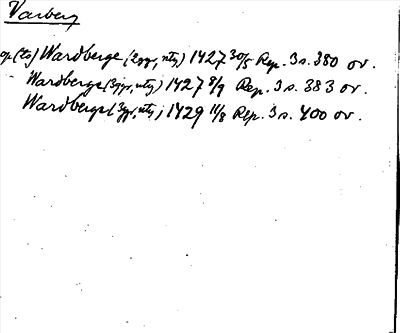 Varberg
op. (to) Wardberge (2ggr, utg) 1427 30/5 Rep. 3 s. 380 or.
Wardberge (3ggr, utg) 1427 8/9 Rep. 3 s. 383 or.
Wardberge (3ggr, utg) 1429 11/8 Rep. 3 s. 400 or.